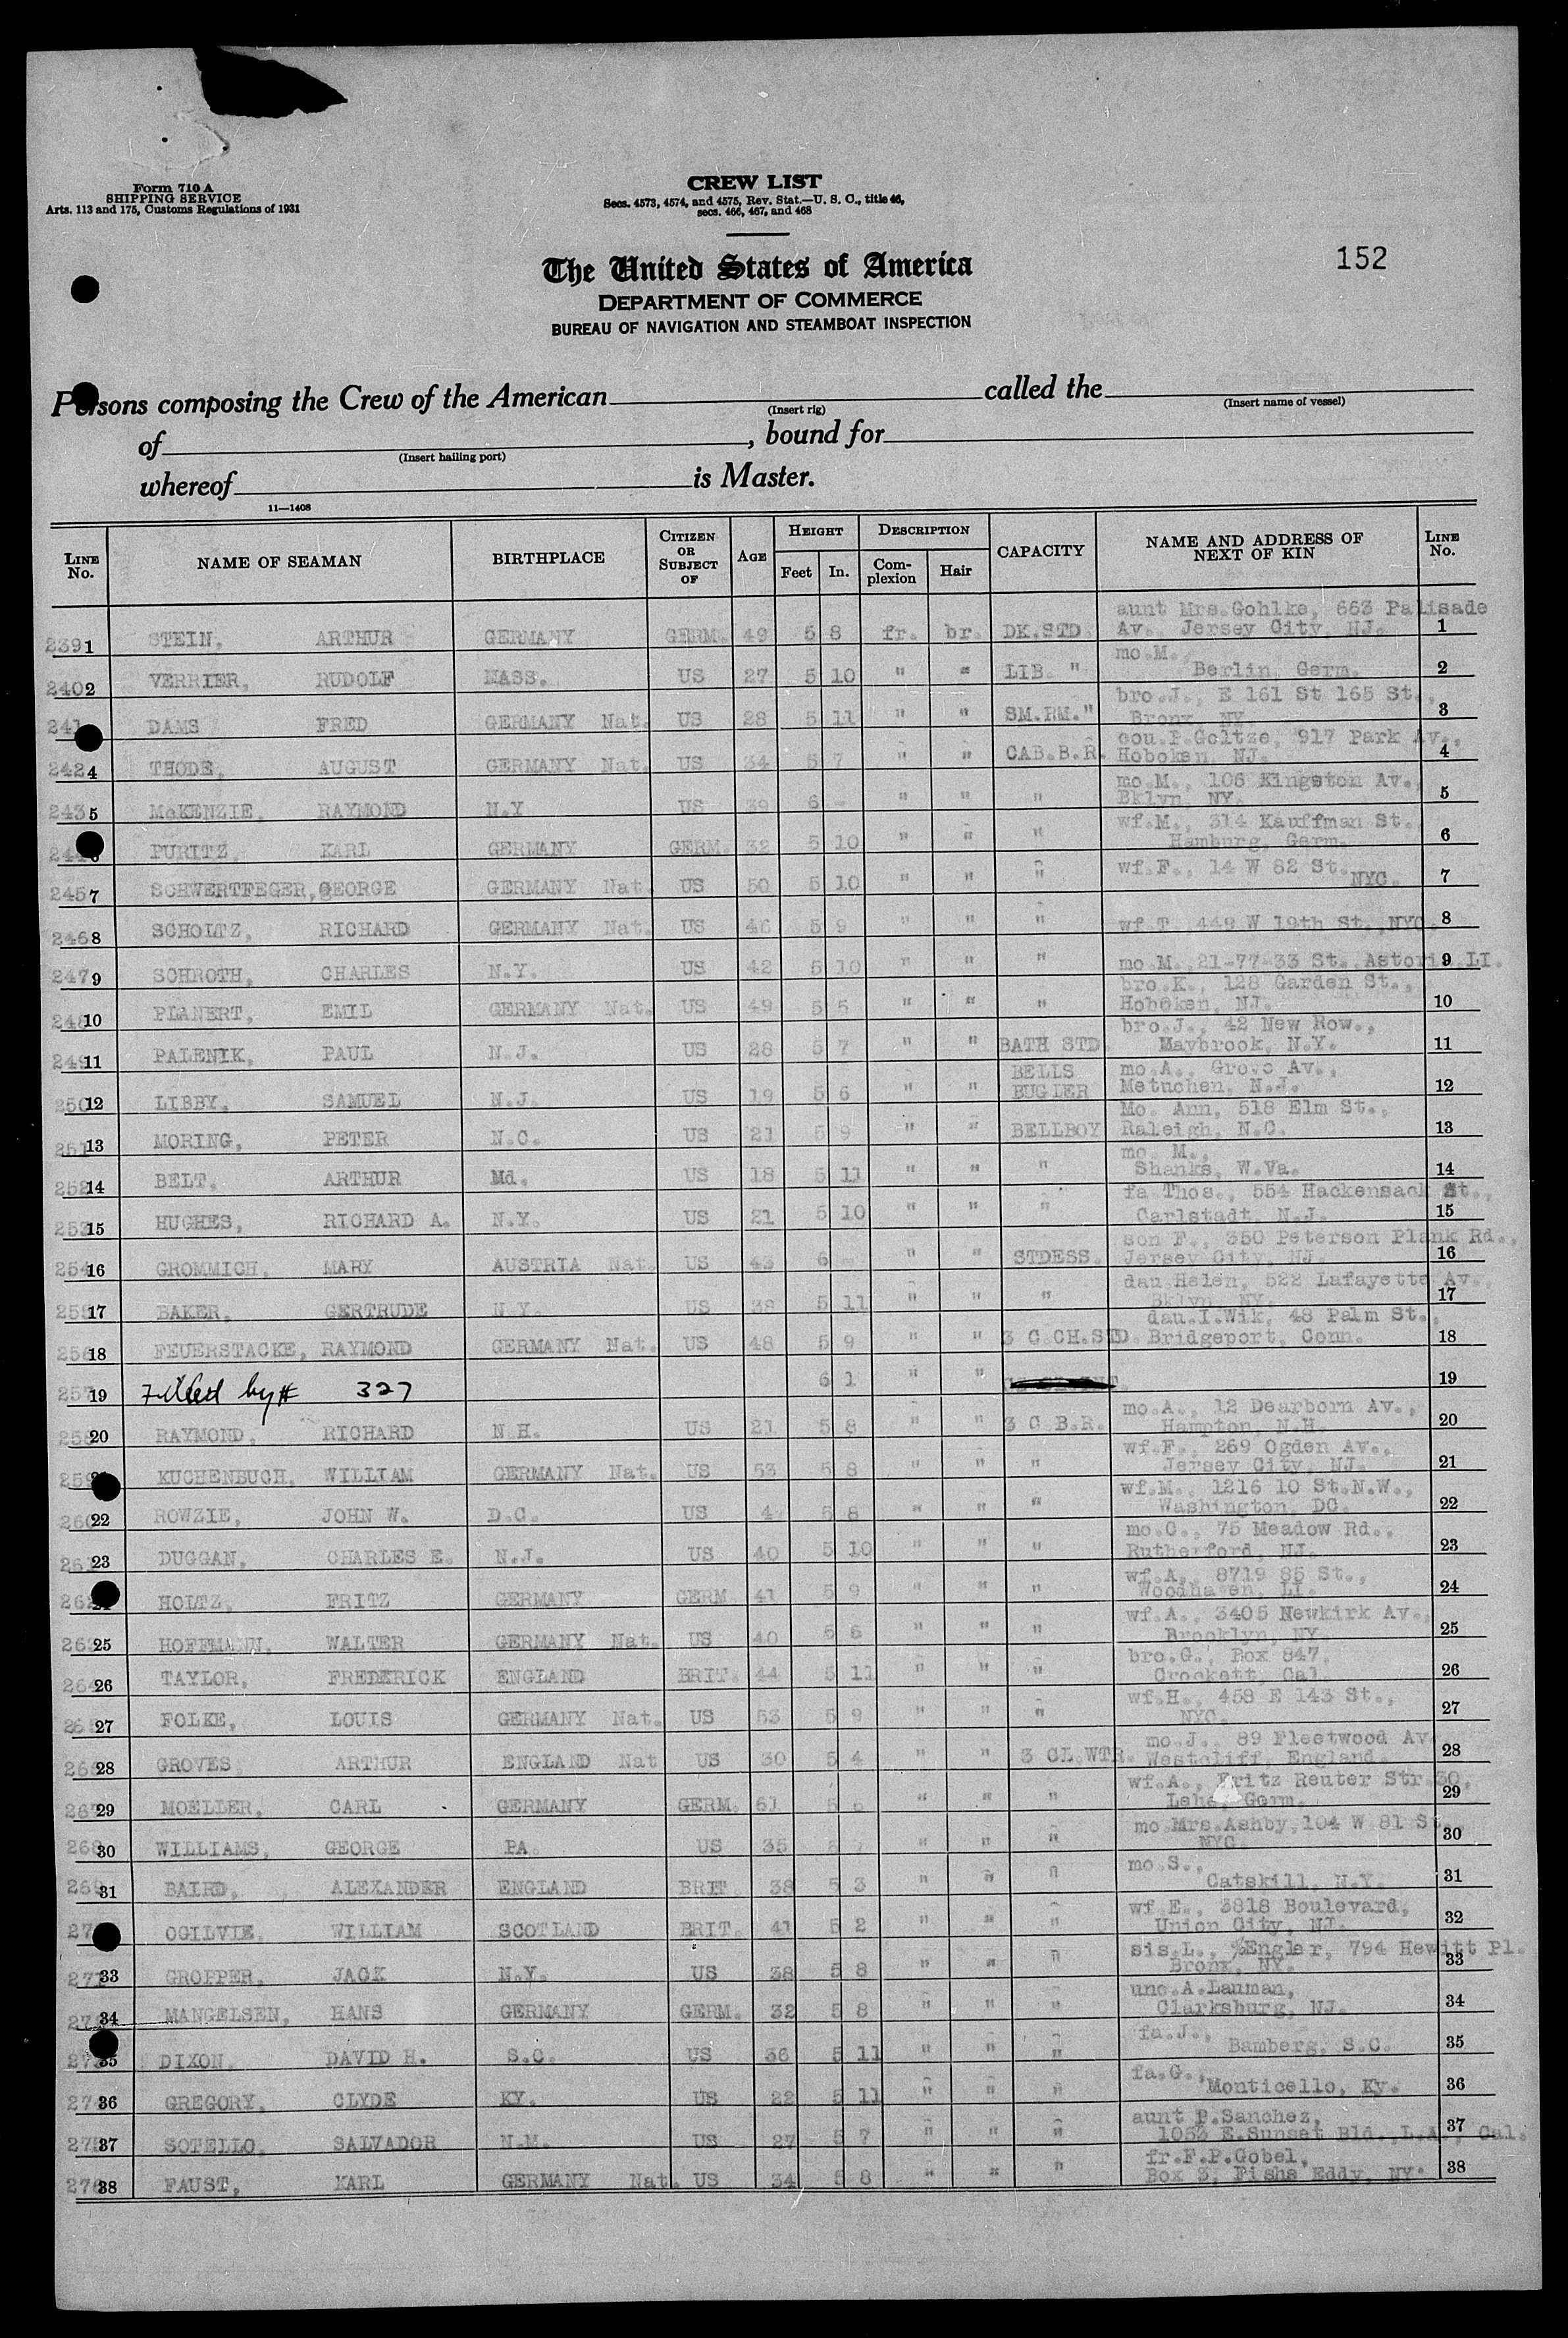 Form 710 A
SHIPPING SERVICE
Arts. 113 and 175, Customs Regulations of 1931
CREW LIST
Secs. 4573, 4574, and 4575, Rev. Stat.—U. S. C., title 46,
secs. 466, 467, and 468
152
The United States of America
DEPARTMENT OF COMMERCE
BUREAU OF NAVIGATION AND STEAMBOAT INSPECTION
Persons composing the Crew of the American called the
(Insert rig) (Insert name of vessel)
of , bound for
(Insert hailing port)
whereof is Master.
11—1408
LINE No. NAME OF SEAMAN BIRTHPLACE CITIZEN OR SUBJECT OF AGE HEIGHT Feet In. DESCRIPTION Complexion Hair CAPACITY NAME AND ADDRESS OF NEXT OF KIN LINE No.
aunt Mrs.Gohlke, 663 Palisade
239 1 STEIN, ARTHUR GERMANY GERM. 49 5 8 fr. br. DK.STD Av. Jersey City, NJ. 1
mo.M.,
240 2 VERRIER, RUDOLF MASS. US 27 5 10 " " LIB. " Berlin, Germ. 2
bro.J., E 161 St 165 St.,
241 DAMS FRED GERMANY Nat. US 28 5 11 " " SM.RM." Bronx, NY. 3
cou.P.Goltze, 917 Park Av.,
242 4 THODE, AUGUST GERMANY Nat. US 34 5 7 " " CAB.B.R. Hoboken, NJ. 4
mo.M., 106 Kingston Av.,
243 5 McKENZIE, RAYMOND N.Y US 39 6 - " " " Bklyn, NY. 5
wf.M., 314 Kauffman St.
244 6 PURITZ, KARL GERMANY GERM. 32 5 10 " " " Hamburg, Germ. 6
wf.F., 14 W 82 St.
245 7 SCHWERTFEGER, GEORGE GERMANY Nat. US 50 5 10 " " " NYC. 7
246 8 SCHOLTZ, RICHARD GERMANY Nat. US 46 5 9 " " " wf.T., 449 W 19th St., NYC. 8
247 9 SCHROTH, CHARLES N.Y. US 42 5 10 " " " mo.M., 21-77-33 St. Astoria LI. 9
bro.K., 128 Garden St.,
248 10 PLANERT, EMIL GERMANY Nat. US 49 5 5 " " " Hoboken, NJ. 10
bro.J., 42 New Row.,
249 11 PALENIK, PAUL N.J. US 28 5 7 " " BATH STD. Maybrook, N.Y. 11
BELLS mo.A., Grove Av.,
250 12 LIBBY, SAMUEL N.J. US 19 5 6 " " BUGLER Metuchen, N.J. 12
Mo. Ann, 518 Elm St.,
251 13 MORING, PETER N.C. US 21 5 9 " " BELLBOY Raleigh, N.C. 13
mo. M.,
252 14 BELT, ARTHUR Md. US 18 5 11 " " " Shanks, W.Va. 14
fa Thos., 554 Hackensack St.,
253 15 HUGHES, RICHARD A. N.Y. US 21 5 10 " " " Carlstadt, N.J. 15
son F., 350 Peterson Plank Rd.,
254 16 GROMMICH, MARY AUSTRIA Nat. US 43 6 - " " STDESS. Jersey City, NJ. 16
dau.Helen, 522 Lafayette Av.,
255 17 BAKER, GERTRUDE N.Y. US 38 5 11 " " " Bklyn, NY. 17
dau.I.Wik, 48 Palm St.,
256 18 FEUERSTACKE, RAYMOND GERMANY Nat. US 48 5 9 " " 3 C.CH.STD. Bridgeport, Conn. 18
257 19 Filled by # 327 6 1 " " 19
mo.A., 12 Dearborn Av.,
258 20 RAYMOND, RICHARD N.H. US 21 5 8 " " 3 C B.R. Hampton, N.H. 20
wf.F., 269 Ogden Av.,
259 KUCHENBUCH, WILLIAM GERMANY Nat. US 53 5 8 " " " Jersey City, NJ. 21
wf.M., 1216 10 St.N.W.,
260 22 ROWZIE, JOHN W. D.C. US 4 5 8 " " " Washington, DC. 22
mo.C., 75 Meadow Rd.,
261 23 DUGGAN, CHARLES E. N.J. US 40 5 10 " " " Rutherford, NJ. 23
wf.A., 8719 85 St.,
262 HOLTZ, FRITZ GERMANY GERM 41 5 9 " " " Woodhaven, LI. 24
wf.A., 3405 Newkirk Av.,
263 25 HOFFMANN, WALTER GERMANY Nat. US 40 5 6 " " " Brooklyn, NY. 25
bro.G., Box 847,
264 26 TAYLOR, FREDERICK ENGLAND BRIT. 44 5 11 " " " Crockett, Cal. 26
wf.H., 458 E 143 St.,
265 27 FOLKE, LOUIS GERMANY Nat. US 53 5 9 " " " NYC. 27
mo.J., 89 Fleetwood Av
266 28 GROVES ARTHUR ENGLAND Nat US 30 5 4 " " 3 CL.WTR. Westcliff, England. 28
wf.A., Fritz Reuter Str.30,
267 29 MOELLER, CARL GERMANY GERM. 61 5 6 " " " Lehe, Germ. 29
mo.Mrs.Ashby, 104 W 81 St.,
268 30 WILLIAMS, GEORGE PA. US 35 5 7 " " " NYC. 30
mo.S.,
269 31 BAIRD, ALEXANDER ENGLAND BRIT 38 5 3 " " " Catskill, N.Y. 31
wf.E., 3818 Boulevard,
270 OGILVIE, WILLIAM SCOTLAND BRIT. 41 5 2 " " " Union City, NJ. 32
sis.L., %Engler, 794 Hewitt Pl.
271 33 GROPPER, JACK N.Y. US 38 5 8 " " " Bronx, NY. 33
unc.A.Lauman,
272 34 MANGELSEN, HANS GERMANY GERM. 32 5 8 " " " Clarksburg, NJ. 34
fa.J.,
273 35 DIXON DAVID H. S.C. US 36 5 11 " " " Bamberg, S.C. 35
fa.G.,
274 36 GREGORY, CLYDE KY. US 22 5 11 " " " Monticello, Ky. 36
aunt P.Sanchez,
275 37 SOTELLO, SALVADOR N.M. US 27 5 7 " " " 1053 E.Sunset Bld., L.A., Cal. 37
fr.F.P.Gobel,
276 38 FAUST, KARL GERMANY Nat. US 34 5 8 " " " Box 3, Fishs Eddy, NY. 38